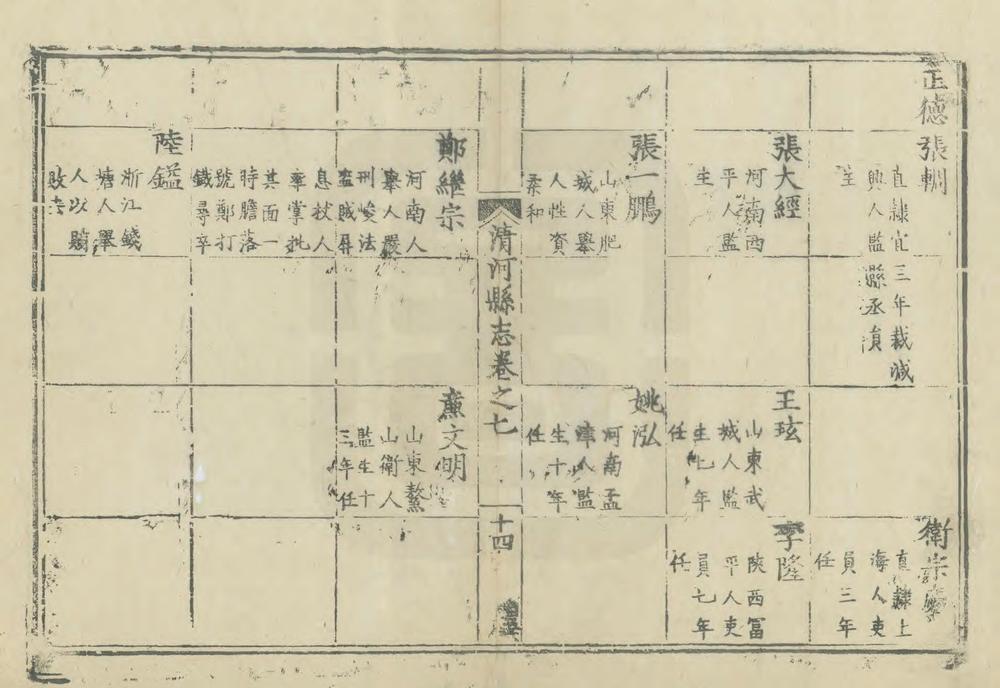 正德
張輞
直隸宜
興人監
生
三年裁減
縣丞員
衛宗
直隸上
海人吏
員三年
任
張大經
河南西
平人監
生
王玹
山東武
城人監
生七年
任
李隆
陝西富
平人吏
員七年
任
張一鵬
山東肥
城人舉
人性資
柔和
姚泓
河南孟
津人監
生十年
任
清河縣志卷之七
十四
鄭繼宗
河南人
舉人嚴
刑峻法
盜賊屏
息杖人
率掌批
其面一
時膽落
號鄭打
鐵尋卒
薫文明
山東鰲
山衛人
監生十
三年任
陸鎰
浙江錢
塘人舉
人以
敗去